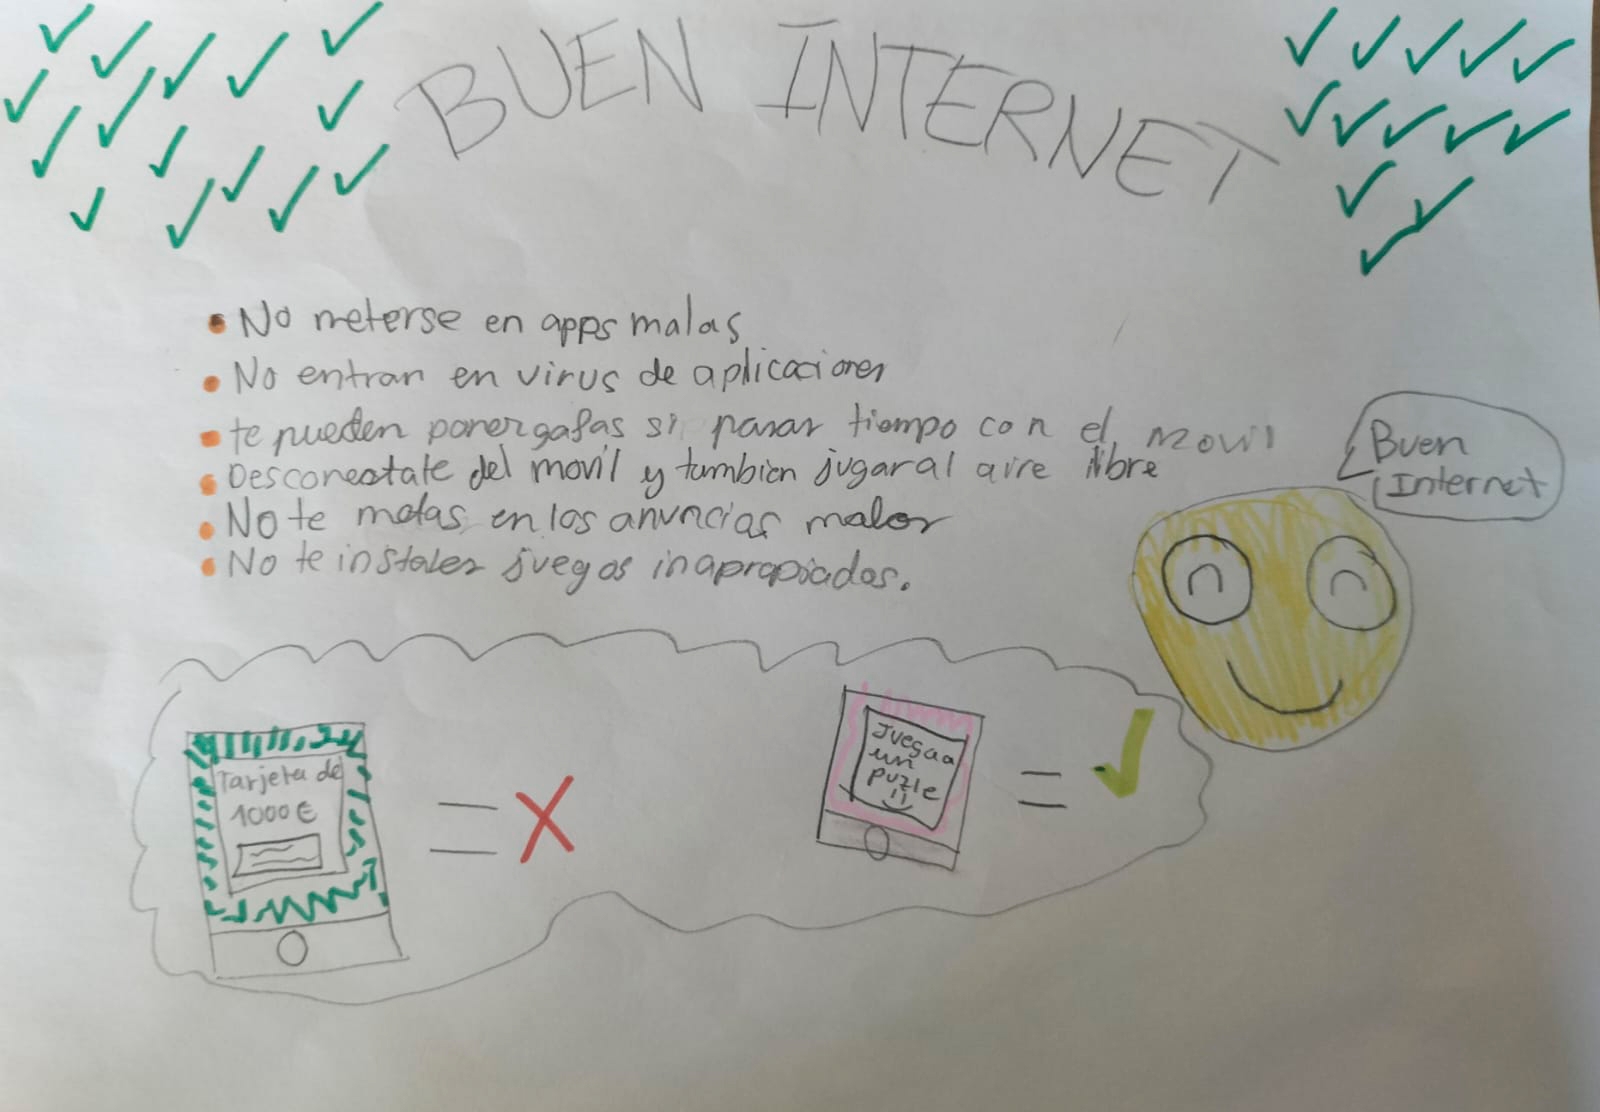 BUEN INTERNET
• No meterse en apps malas
• No entran en virus de aplicaciones
• te pueden poner gafas si pasar tiempo con el movil
• Desconeatate del movil y tambien jugar al aire libre
• No te metas en los anuncias malos
• No te instales juegos inapropiados.
Buen
Internet
Tarjeta de
1000€
Juega a
un
puzle
= X
= ✓